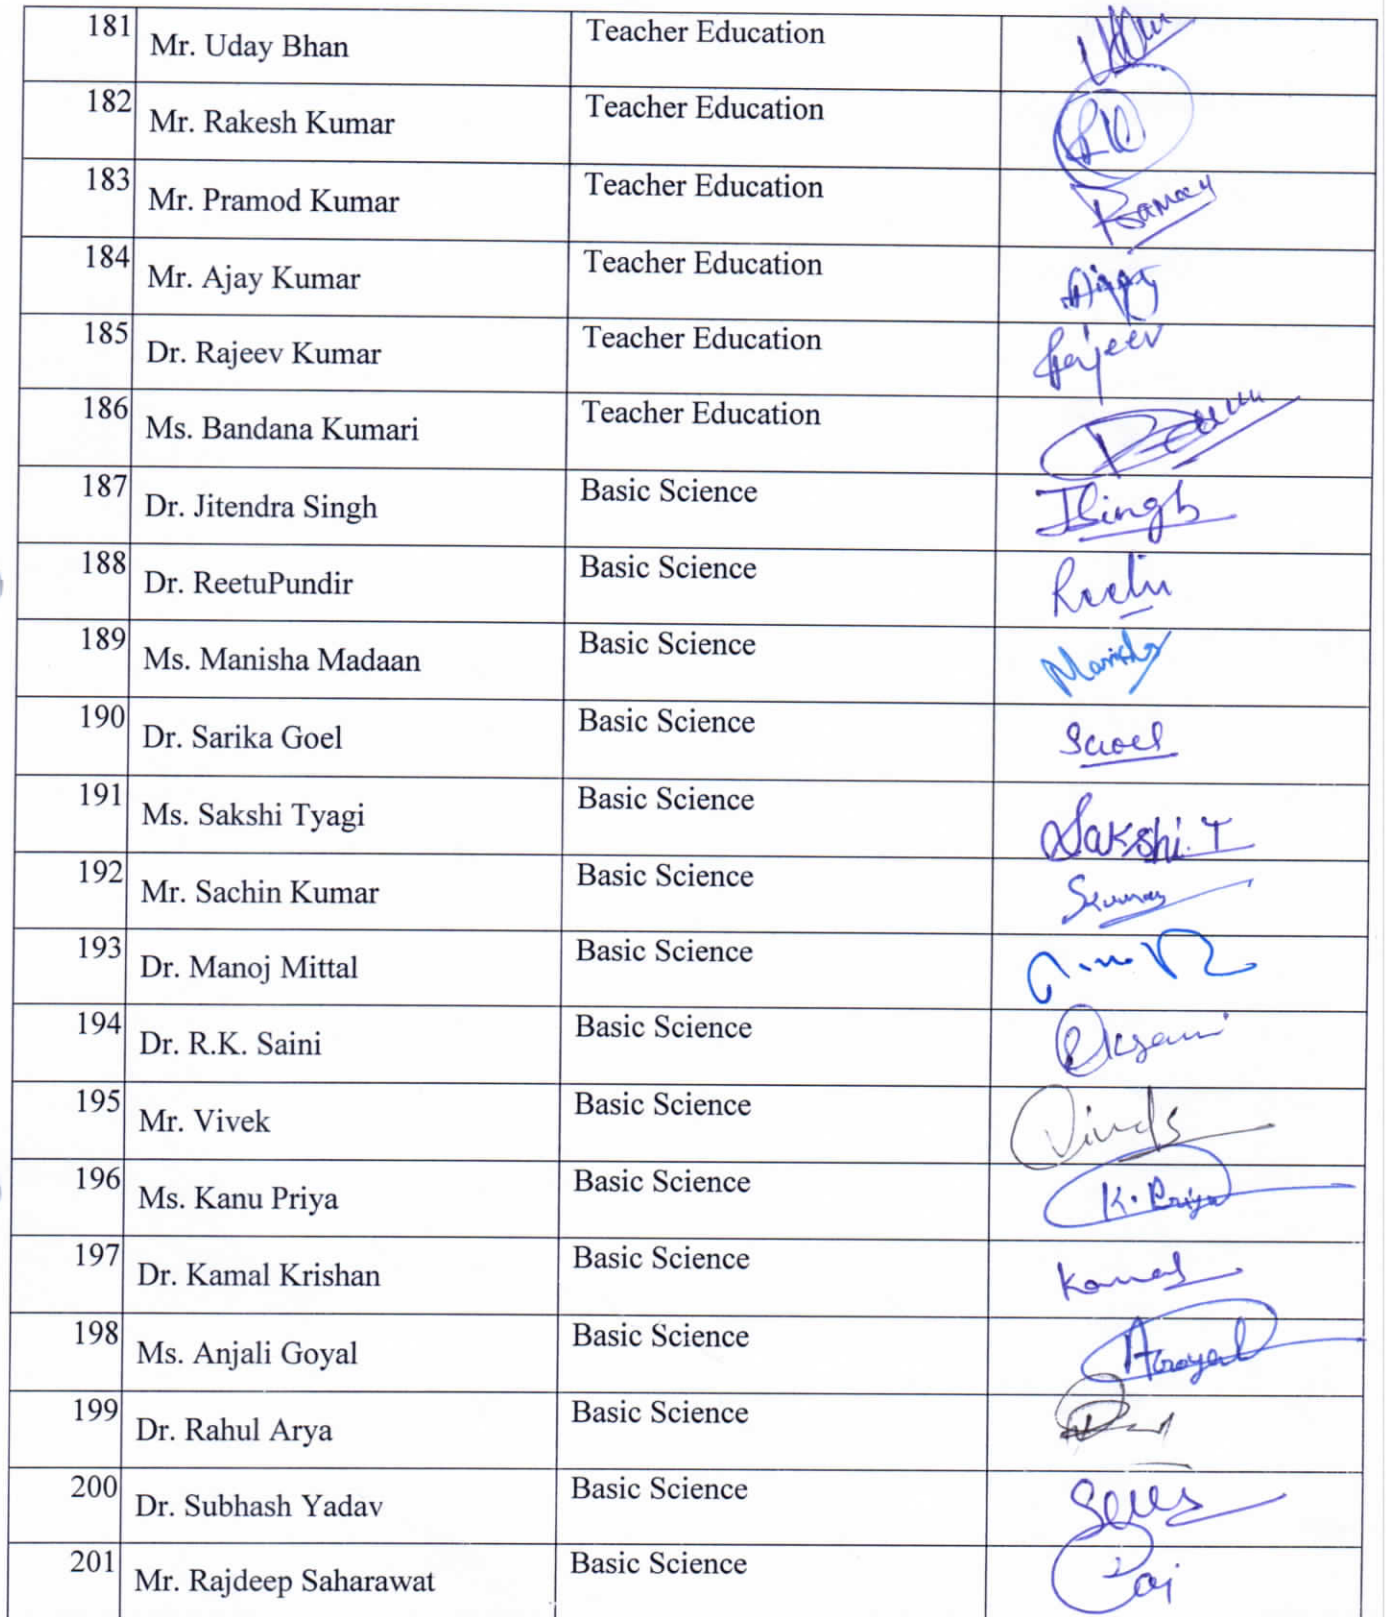 181 Mr. Uday Bhan Teacher Education
182 Mr. Rakesh Kumar Teacher Education RK
183 Mr. Pramod Kumar Teacher Education
184 Mr. Ajay Kumar Teacher Education Ajay
185 Dr. Rajeev Kumar Teacher Education Rajeev
186 Ms. Bandana Kumari Teacher Education
187 Dr. Jitendra Singh Basic Science JSingh
188 Dr. ReetuPundir Basic Science Reetu
189 Ms. Manisha Madaan Basic Science Manisha
190 Dr. Sarika Goel Basic Science SGoel
191 Ms. Sakshi Tyagi Basic Science Sakshi.T
192 Mr. Sachin Kumar Basic Science SKumar
193 Dr. Manoj Mittal Basic Science
194 Dr. R.K. Saini Basic Science RKSaini
195 Mr. Vivek Basic Science
196 Ms. Kanu Priya Basic Science K. Priya
197 Dr. Kamal Krishan Basic Science Kamal
198 Ms. Anjali Goyal Basic Science AGoyal
199 Dr. Rahul Arya Basic Science
200 Dr. Subhash Yadav Basic Science
201 Mr. Rajdeep Saharawat Basic Science Raj